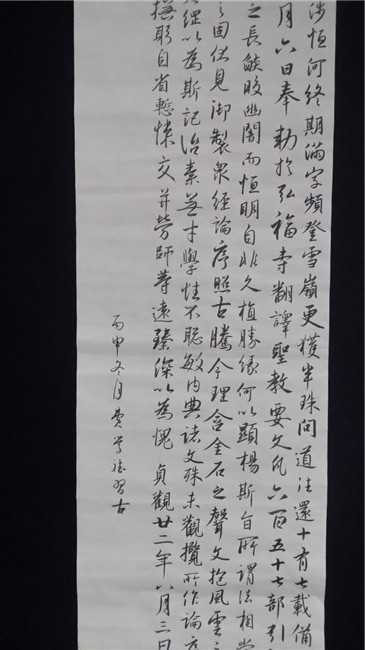 涉恒河終期滿字頻登雪嶺更獲半珠問道法還十有七載備
月六日奉勅於弘福寺翻譯聖教要文凡六百五十七部引
之長燄皎幽闇而恒明自非久植勝緣何以顯楊斯旨所謂法相常
固伏見御製眾經論序照古騰今理含金石之聲文抱風雲之
經以為斯記治素無才學性不聰敏內典諸文殊未觀攬所作論序
撫躬自省慙悚交并勞師等遠臻深以為愧貞觀廿二年八月三日
丙申冬月費習古